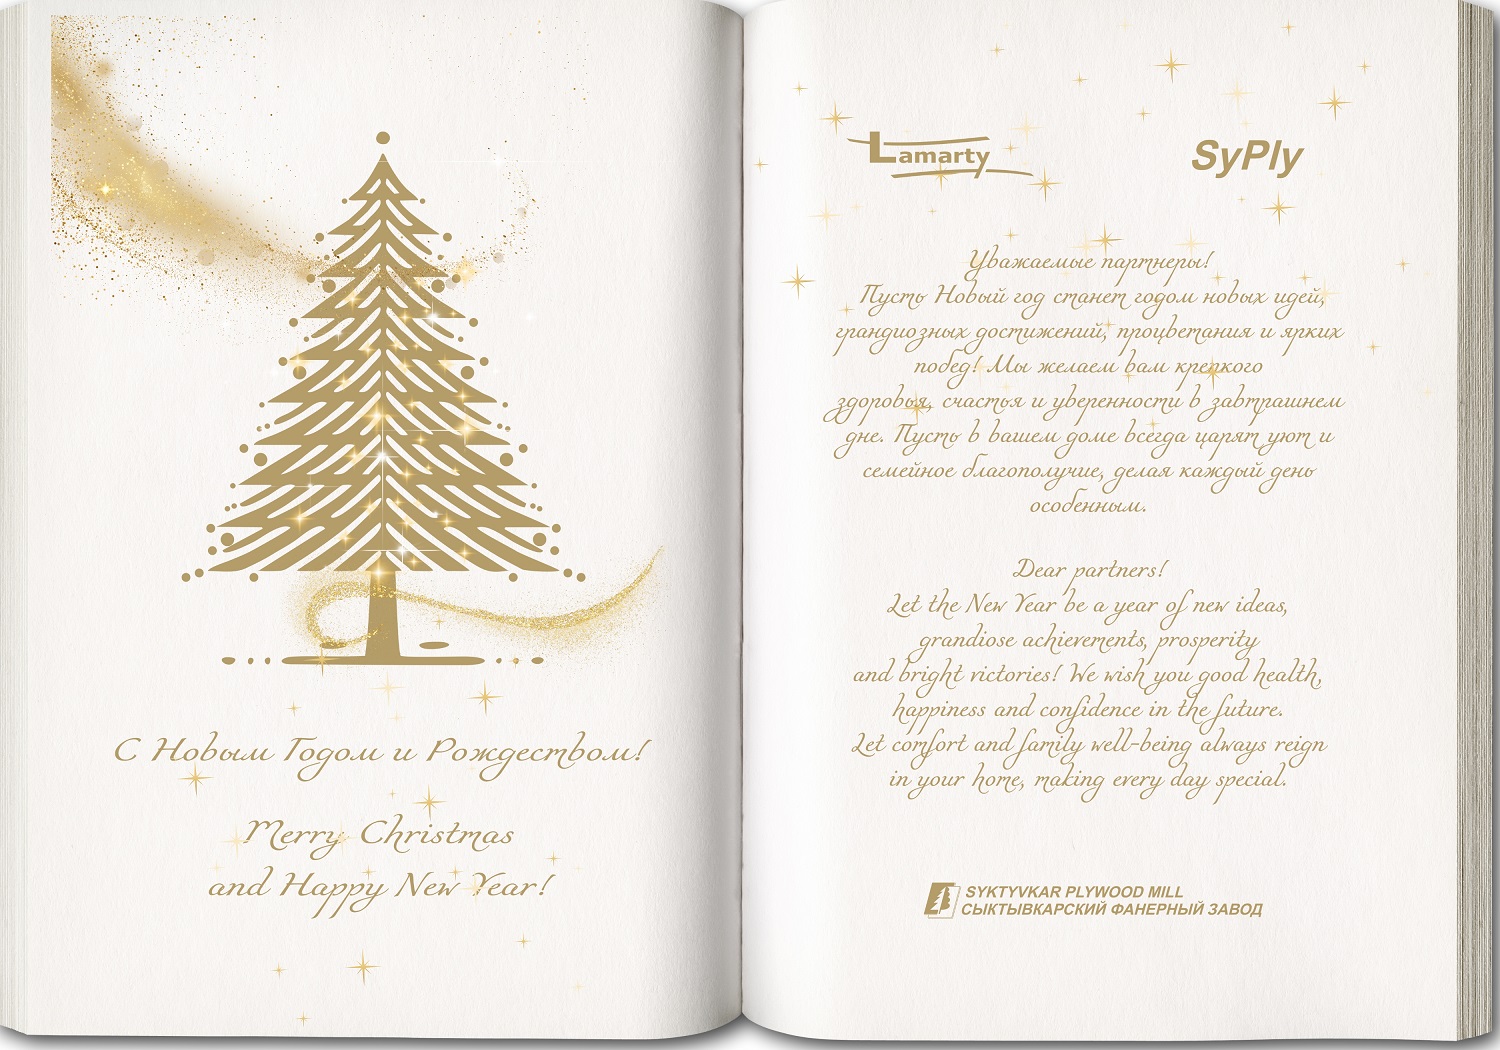 С Новым Годом и Рождеством!
Merry Christmas
and Happy New Year!
Lamarty
SyPly
Уважаемые партнеры!
Пусть Новый год станет годом новых идей,
грандиозных достижений, процветания и ярких
побед! Мы желаем вам крепкого
здоровья, счастья и уверенности в завтрашнем
дне. Пусть в вашем доме всегда царят уют и
семейное благополучие, делая каждый день
особенным.
Dear partners!
Let the New Year be a year of new ideas,
grandiose achievements, prosperity
and bright victories! We wish you good health,
happiness and confidence in the future.
Let comfort and family well-being always reign
in your home, making every day special.
SYKTYVKAR PLYWOOD MILL
СЫКТЫВКАРСКИЙ ФАНЕРНЫЙ ЗАВОД